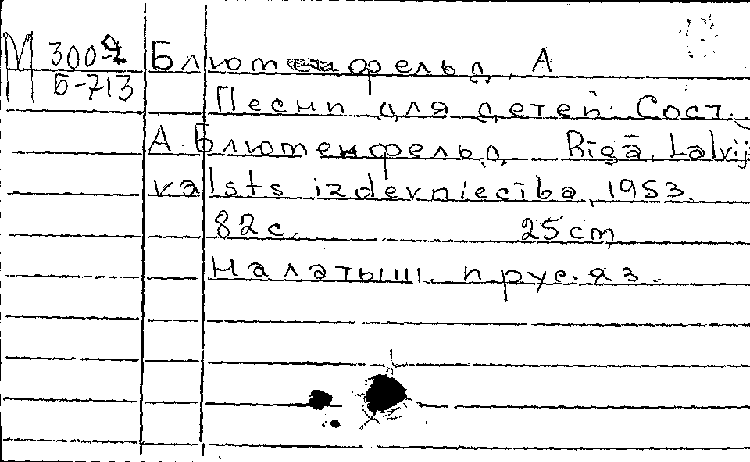 М 300-Я Блютенфельд, А
Б-713
Песни для детей. Сост.
А. Блютенфельд. Rīgā, Latvij
valsts izdevniecība, 1953.
82 с. 25 cm
На латыш. и рус. яз.